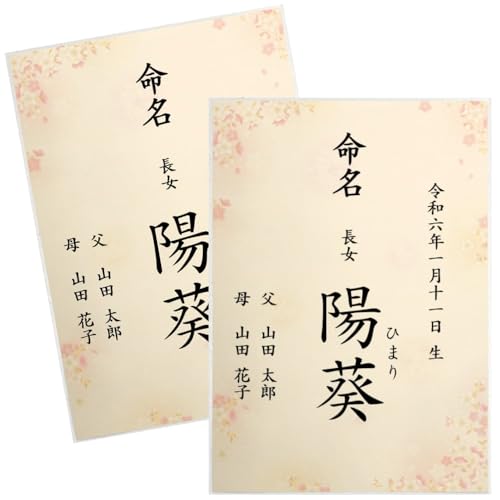 命名
長女
陽葵
父 山田 太郎
母 山田 花子
令和六年一月十一日 生
命名
長女
陽葵
ひまり
父 山田 太郎
母 山田 花子